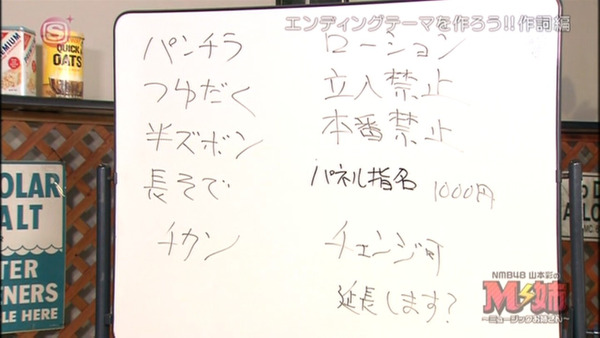 エンディングテーマを作ろう!!作詞編
S
PREMIUM
QUICK
OATS
パンチラ
つゆだく
半ズボン
長そで
チカン
ローション
立入禁止
本番禁止
パネル指名 1000円
チェンジ可
延長します?
OLAR
ALT
TER
ENERS
LE HERE
NMB48 山本彩の
M姉
~ミュージックお姉さん~